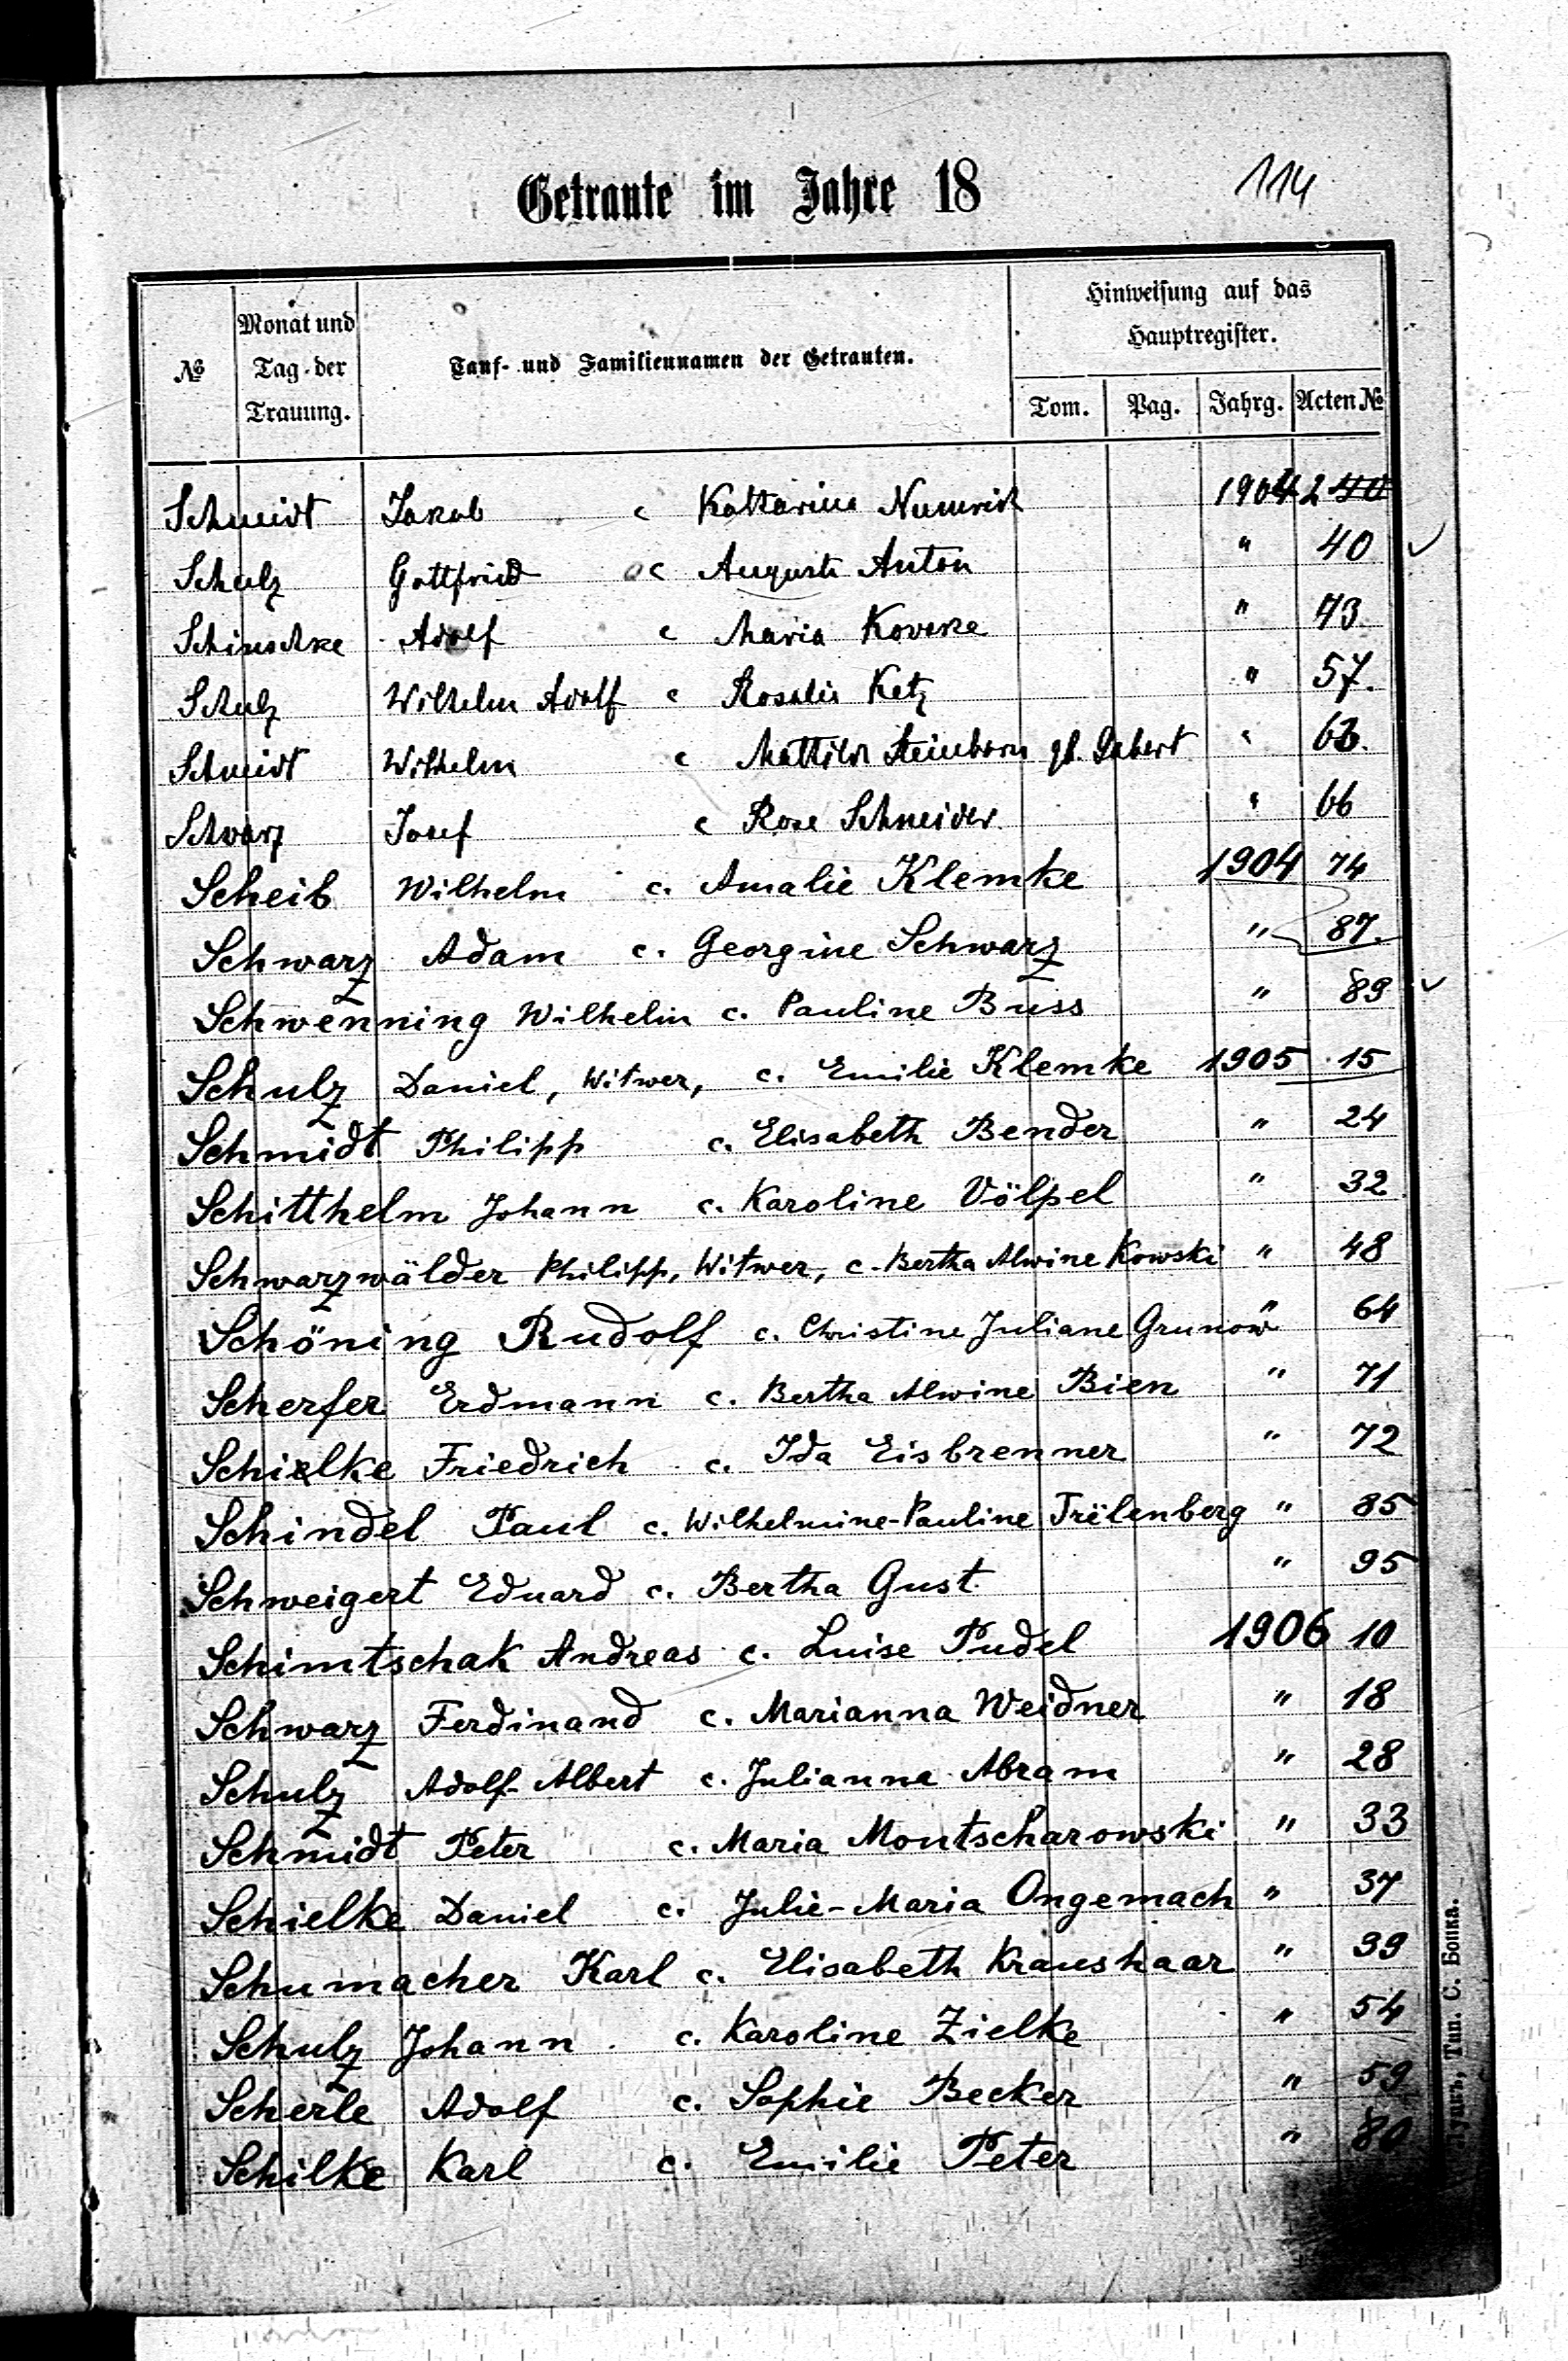 114
Getraute im Jahre 18
№ Monat und Tag der Trauung. Tauf- und Familiennamen der Getrauten. Hinweisung auf das Hauptregister.
Tom. Pag. Jahrg. Acten №
Schmidt Jakob c Katharina 1904 2 40
Schulz Gottfried c Auguste Anton " 40
Schinschke Adolf c Maria " 43.
Schulz Wilhelm Adolf c Rosalie Ketz " 57.
Schmidt Wilhelm c Mathilde Steinborn gb. "
Schwarz Josef c Rosa Schneider " 66
Scheib Wilhelm c. Amalie Klemke 1904 74
Schwarz Adam c. Georgine Schwarz " 87.
Schwenning Wilhelm c. Pauline Buss " 89
Schulz Daniel, Witwer, c. Emilie Klemke 1905 15
Schmidt Philipp c. Elisabeth Bender " 24
Schitthelm Johann c. Karoline Völpel " 32
Schwarzwälder Philipp, Witwer, c. Bertha Alwine Kowski " 48
Schöning Rudolf c. Christine Juliane Grunow " 64
Scherfer Erdmann c. Bertha Alwine Bien " 71
Schielke Friedrich c. Ida Eisbrenner " 72
Schindel Paul c. Wilhelmine-Pauline Trëlenberg " 85
Schweigert Eduard c. Bertha Gust. " 95
Schimtschak Andreas c. Luise Pudel 1906 10
Schwarz Ferdinand c. Marianna Weidner " 18
Schulz Adolf-Albert c. Julianna Abram " 28
Schmidt Peter c. Maria Montscharowski " 33
Schielke Daniel c. Julie-Maria Ongemach " 37
Schumacher Karl c. Elisabeth Kraushaar " 39
Schulz Johann c. Karoline Zielke " 54
Scherle Adolf c. Sophie Becker " 59
Schilke Karl c. Emilie Peter " 80
Тип. С. Бонка.